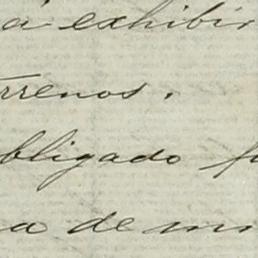 á exhibir
rrenos.
bligado
a de